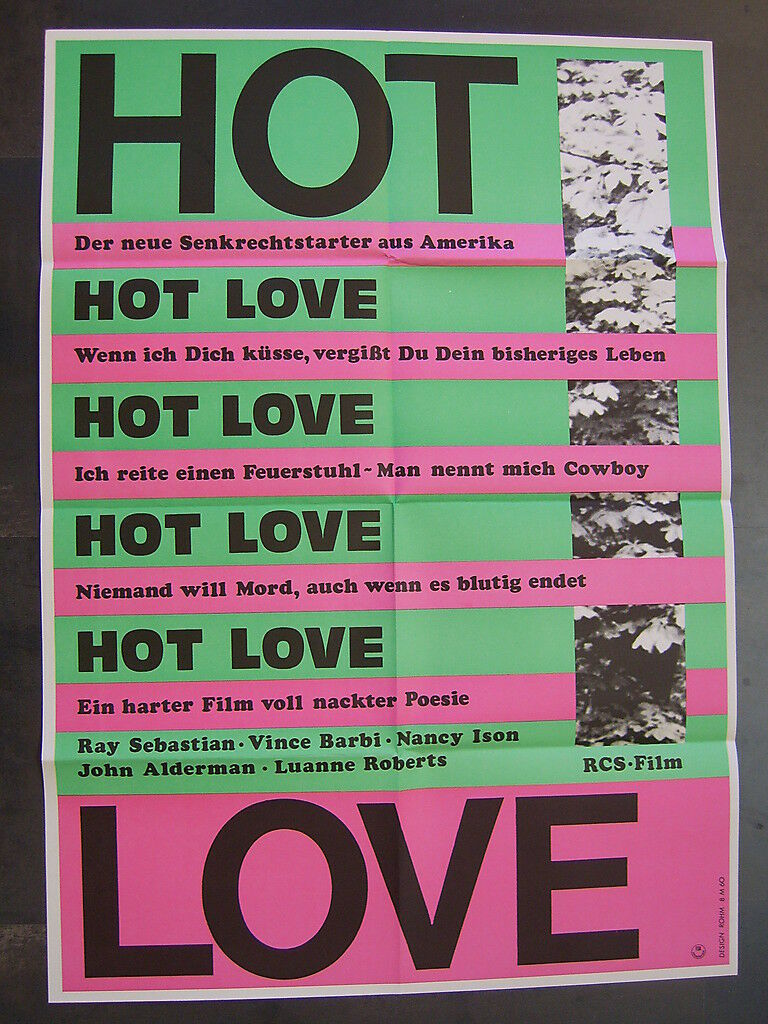 HOT
Der neue Senkrechtstarter aus Amerika
HOT LOVE
Wenn ich Dich küsse, vergißt Du Dein bisheriges Leben
HOT LOVE
Ich reite einen Feuerstuhl~Man nennt mich Cowboy
HOT LOVE
Niemand will Mord, auch wenn es blutig endet
HOT LOVE
Ein harter Film voll nackter Poesie
Ray Sebastian · Vince Barbi · Nancy Ison
John Alderman · Luanne Roberts
RCS·Film
LOVE
DESIGN ROHM 8 M 60